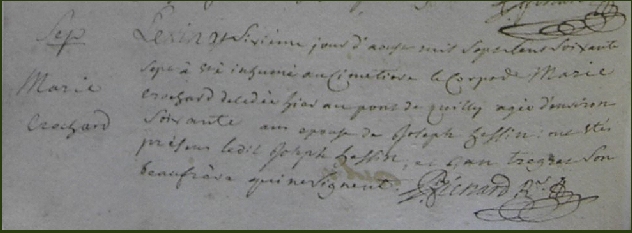 Sep
Marie
Crochard
Le vingt Sixième jour d'aoust mil Sept cens Soixante
Sept à été inhumé au Cimetiere le Corps de Marie
Crochard decedée hier au pont de quilly agée d'environ
Soixante ans epouse de Joseph hessin: ont Etés
présens ledit Joseph hessin, et Jan tregret Son
beaufrère qui ne signent.